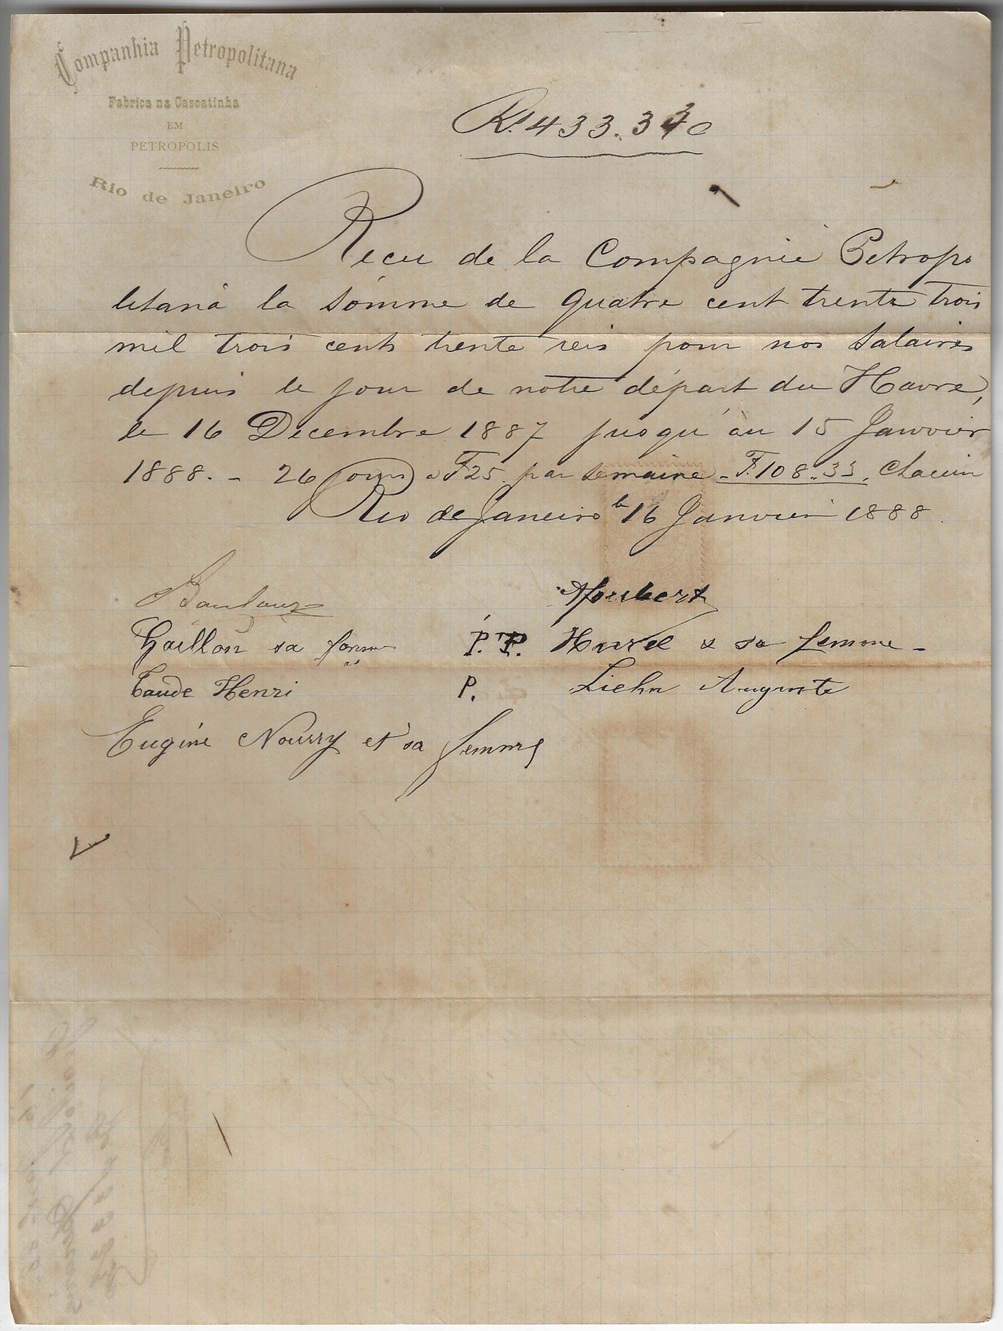 Companhia Petropolitana
Fabrica na Cascatinha
EM
PETROPOLIS
Rio de Janeiro
Rs 433.330
Recu de la Compagnie Petropo
litana la somme de quatre cent trente trois
mil trois cents trente reis pour nos salaires
depuis le jour de notre départ du Havre,
le 16 Decembre 1887 jusqu'au 15 Janvier
1888. - 26 jours a F 25 par semaine - F. 108.33. Chacun
Rio de Janeiro le 16 Janvier 1888
Gaillon sa femme P.P. Hurel & sa femme -
Henri P. Liehn Auguste
Eugéne Nourry et sa femme